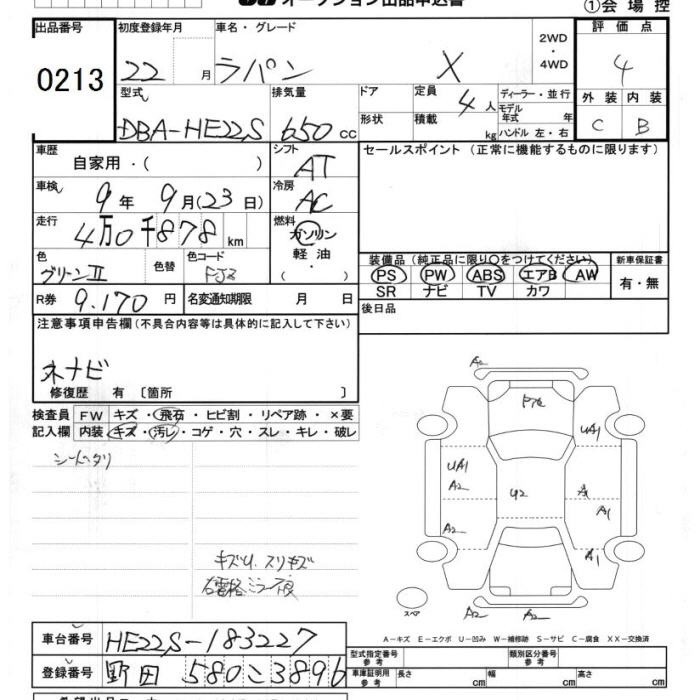 オークション出品申込書
①会場控
出品番号 初度登録年月 車名・グレード 2WD・4WD 評価点
0213 22 月 ラパン X 4
型式 排気量 ドア 定員 4人 ディーラー・並行 外装 内装
DBA-HE22S 650 cc 形状 積載 kg モデル年式 年 ハンドル 左・右 C B
車歴 自家用・( ) シフト AT セールスポイント (正常に機能するものに限ります)
車検 9年 9月(23日) 冷房 AC
走行 4万0千878km 燃料 ガソリン
軽油・( )
色 グリーンⅡ 色替 色コード 装備品(純正品に限り○をつけてください) 新車保証書
PS PW ABS エアB AW 有・無
SR ナビ TV カワ
R券 9.170円 名変通知期限 月 日 後日品
注意事項申告欄(不具合内容等は具体的に記入して下さい)
ネナビ
修復歴 有 〔箇所 〕
検査員 FW キズ・飛石・ヒビ割・リペア跡・×要
記入欄 内装 キズ・汚レ・コゲ・穴・スレ・キレ・破レ
シートヘタリ
A2
UA1 UA1
A2 U2 A1
A2 A1
A2 A2
スペア
キズU.スリキズ
A-キズ E-エクボ U-凹み W-補修跡 S-サビ C-腐食 XX-交換済
車台番号 HE22S-183227 型式指定番号 参考 類別区分番号 参考
登録番号 野田 580 こ 3896 車庫証明用 参考 長さ cm 幅 cm 高さ cm